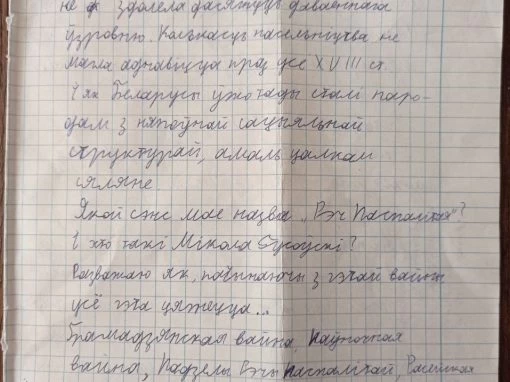 не здолела дасягнуць даваеннага
ўзроўню. Колькасць насельніцтва не
магла аднавіцца праз усё XVIII ст.
І як Беларусы ужо тады сталі наро-
дам з няпоўнай сацыяльнай
структурай, амаль цалкам
сяляне.
Якой сэнс мае назва „Рэч Паспалітая"?
І хто такі Мікола
Разважаю як, пачынаючы з гэтай вайны
усё гэта цягнецца...
Грамадзянская вайна, Паўночная
вайна, Падзелы Рэчы Паспалітай, Расейская